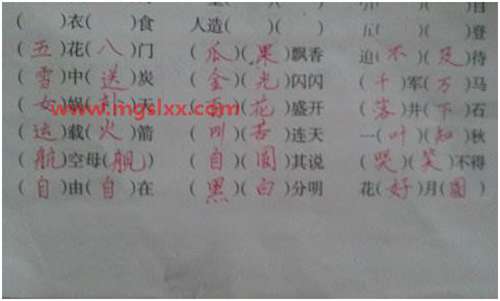 (  )衣(  )食 人造(  )(  ) 五(  )(  )登
(五)花(八)门 (瓜)(果)飘香 迫(不)(及)待
(雪)中(送)炭 (金)(光)闪闪 (千)军(万)马
(女)娲(  )天 (  )(花)盛开 (落)井(下)石
www.mgslxx.com
(运)载(火)箭 (叫)(苦)连天 一(叶)(知)秋
(航)空母(舰) (自)(圆)其说 (哭)(笑)不得
(自)由(自)在 (黑)(白)分明 花(好)月(圆)